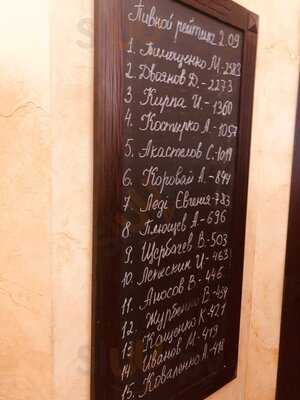 Пивной рейтинг 2.09
1. Тимощенко М.-2983
2. Двоянов Д.-2273
3. Кирпа И.-1360
4. Костирко А.-1057
5. Акастелов С.-1019
6. Коровай А.-844
7. Леді Євгенія-723
8. Плющев А-696
9. Щербачев В.-503
10. И.-463
11. Аносов В.-446
12. Журбенко В-439
13. Кощенко К-421
14. Иванов М.-419
15. Коваленко А.-418